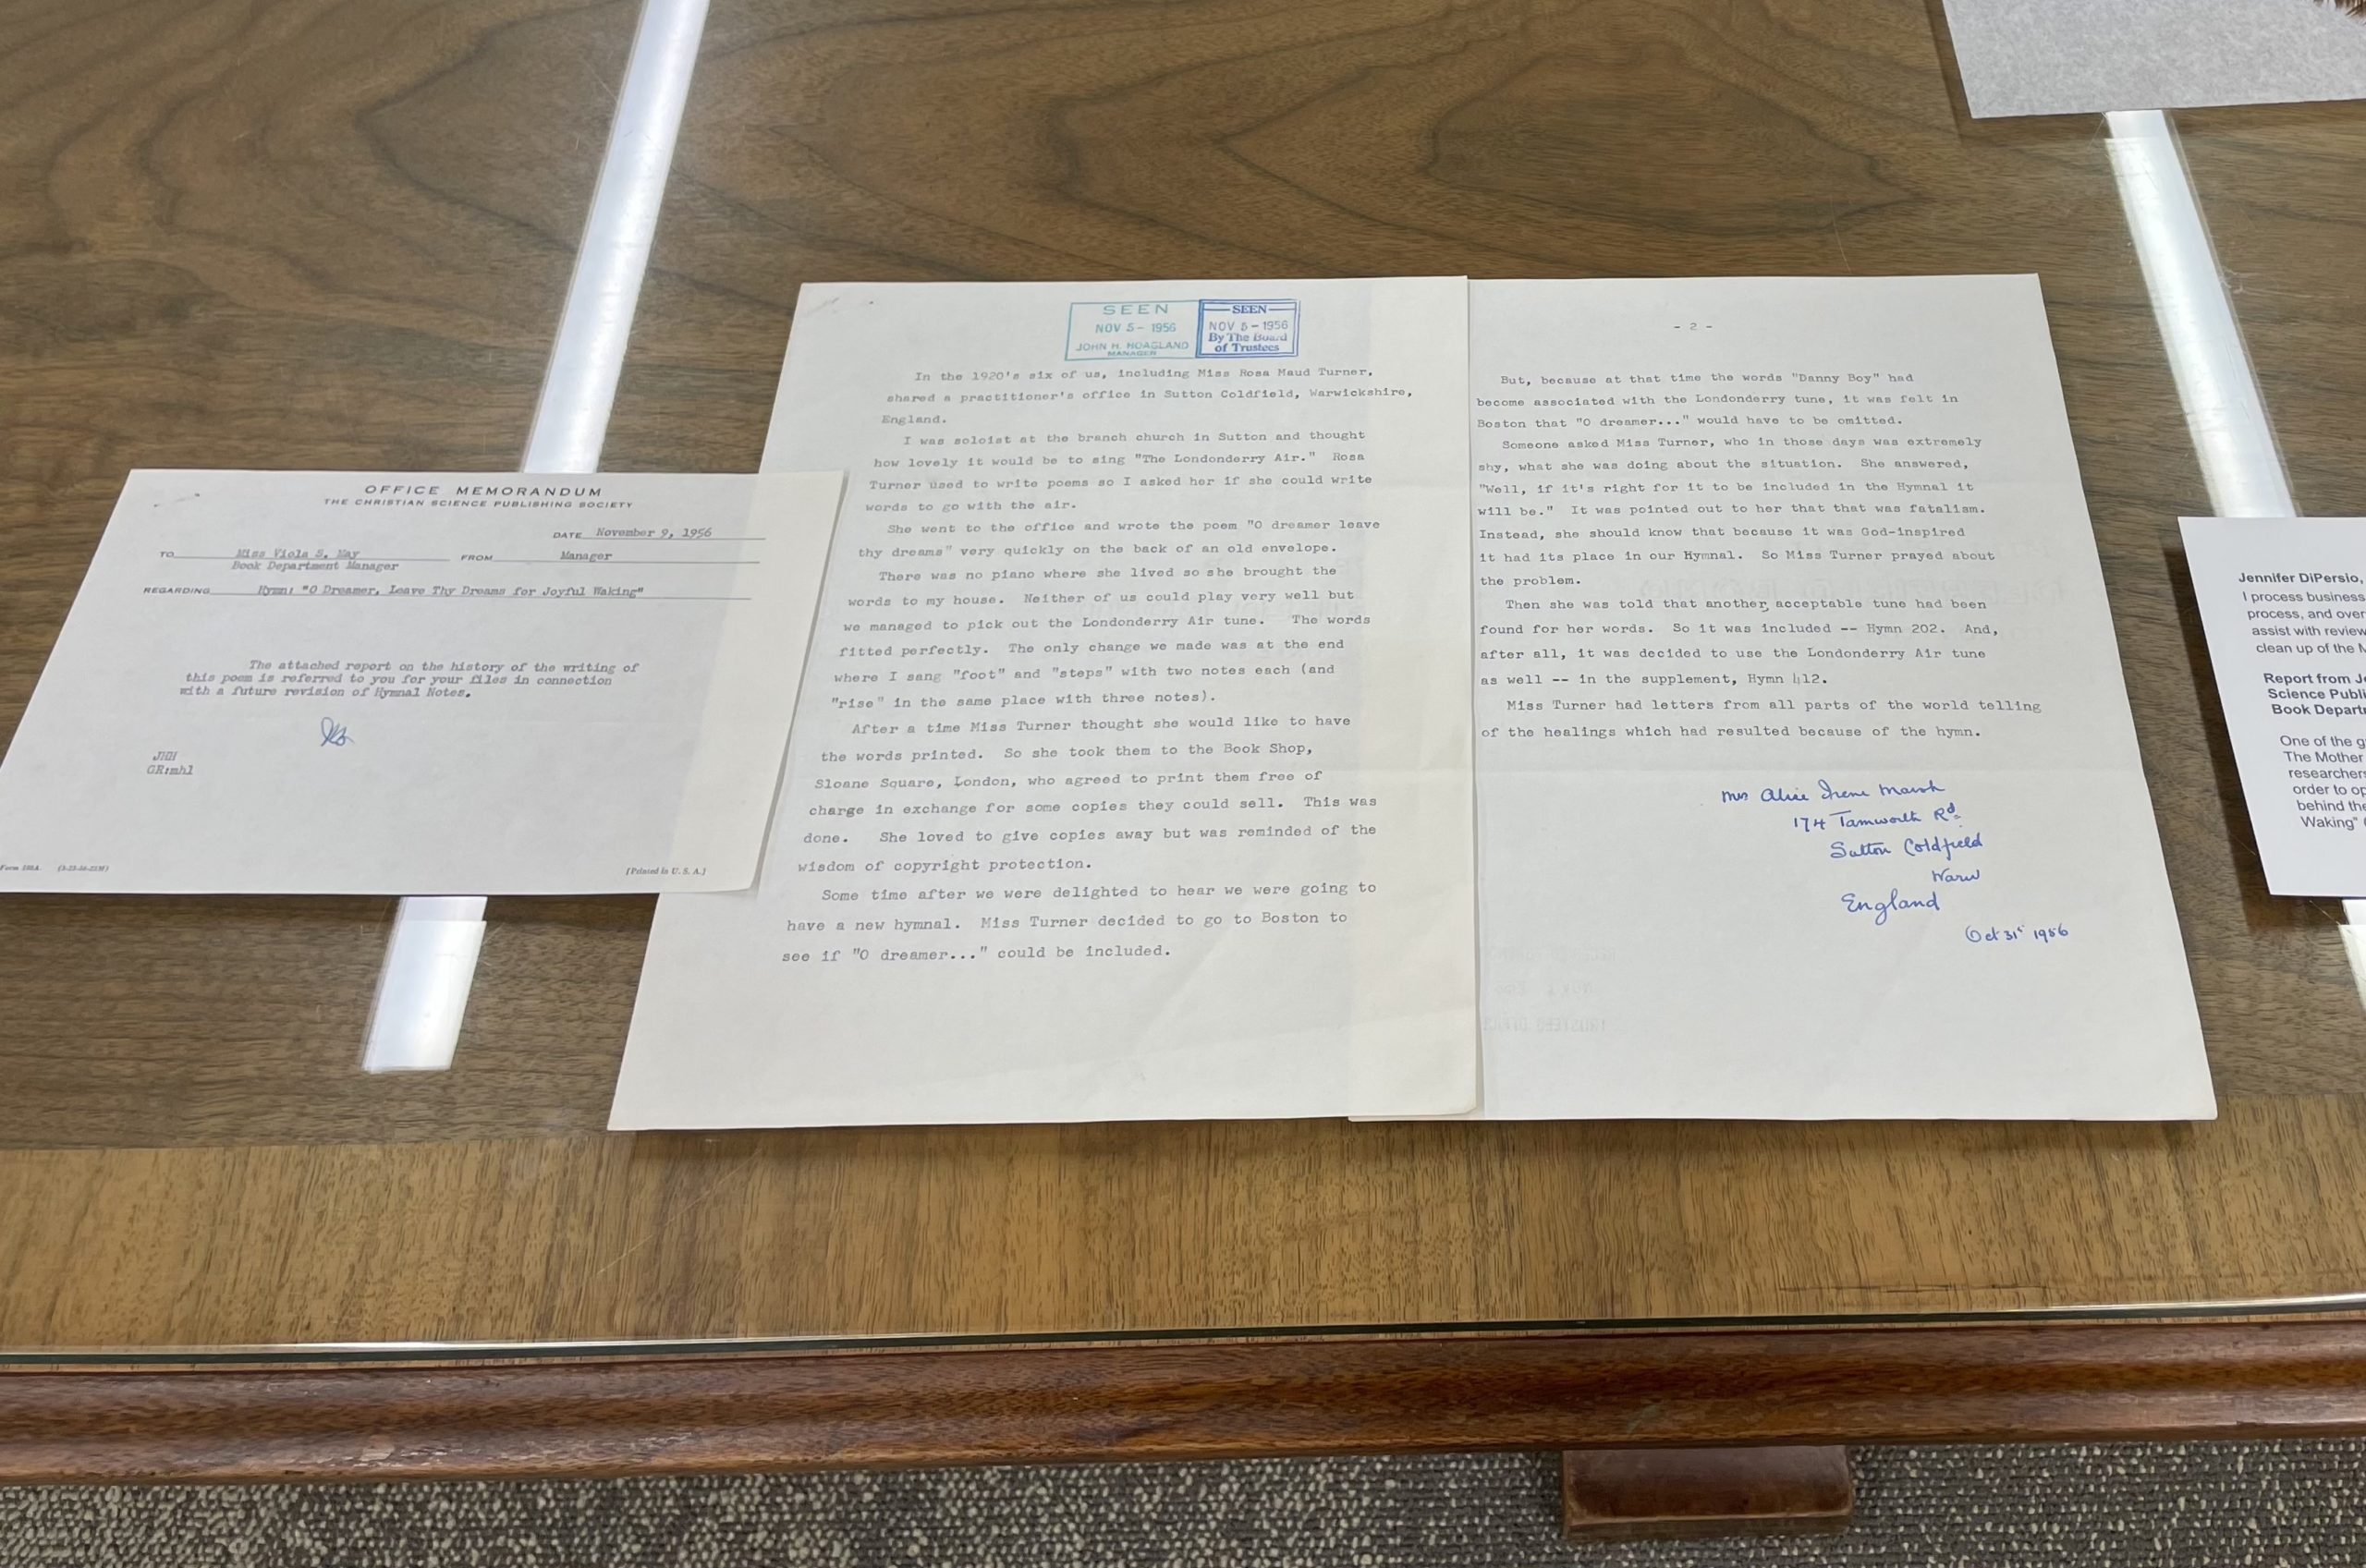 OFFICE MEMORANDUM
THE CHRISTIAN SCIENCE PUBLISHING SOCIETY
DATE November 9, 1956
TO Miss Viola S. May FROM Manager
Book Department Manager
REGARDING Hymn: "O Dreamer, Leave Thy Dreams for Joyful Waking"
The attached report on the history of the writing of
this poem is referred to you for your files in connection
with a future revision of Hymnal Notes.
JHH
GR:mhl
[Printed in U. S. A.]
SEEN
NOV 5 - 1956
JOHN H. HOAGLAND
MANAGER
SEEN
NOV 5 - 1956
By The Board
of Trustees
In the 1920's six of us, including Miss Rosa Maud Turner,
shared a practitioner's office in Sutton Coldfield, Warwickshire,
England.
I was soloist at the branch church in Sutton and thought
how lovely it would be to sing "The Londonderry Air." Rosa
Turner used to write poems so I asked her if she could write
words to go with the air.
She went to the office and wrote the poem "O dreamer leave
thy dreams" very quickly on the back of an old envelope.
There was no piano where she lived so she brought the
words to my house. Neither of us could play very well but
we managed to pick out the Londonderry Air tune. The words
fitted perfectly. The only change we made was at the end
where I sang "foot" and "steps" with two notes each (and
"rise" in the same place with three notes).
After a time Miss Turner thought she would like to have
the words printed. So she took them to the Book Shop,
Sloane Square, London, who agreed to print them free of
charge in exchange for some copies they could sell. This was
done. She loved to give copies away but was reminded of the
wisdom of copyright protection.
Some time after we were delighted to hear we were going to
have a new hymnal. Miss Turner decided to go to Boston to
see if "O dreamer..." could be included.
- 2 -
But, because at that time the words "Danny Boy" had
become associated with the Londonderry tune, it was felt in
Boston that "O dreamer..." would have to be omitted.
Someone asked Miss Turner, who in those days was extremely
shy, what she was doing about the situation. She answered,
"Well, if it's right for it to be included in the Hymnal it
will be." It was pointed out to her that that was fatalism.
Instead, she should know that because it was God-inspired
it had its place in our Hymnal. So Miss Turner prayed about
the problem.
Then she was told that another acceptable tune had been
found for her words. So it was included -- Hymn 202. And,
after all, it was decided to use the Londonderry Air tune
as well -- in the supplement, Hymn 412.
Miss Turner had letters from all parts of the world telling
of the healings which had resulted because of the hymn.
Mrs Alice Irene Marsh
174 Tamworth Rd.
Sutton Coldfield
Warw
England
Oct 31st 1956
Jennifer DiPersio,
I process business
process, and over
assist with review
clean up of the M
Report from Jo
Science Publi
Book Departm
One of the g
The Mother
researchers
order to op
behind the
Waking" (